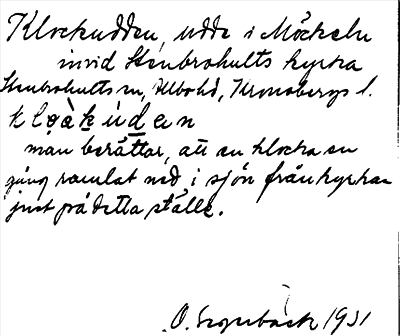 Klockudden, udde i Möckeln
invid Stenbrohults kyrka
Stenbrohults sn, Allbo hd, Kronobergs l.
klo̥àkúden
man berättar, att en klocka en
gång ramlat ned i sjön från kyrkan
just på detta ställe.
O. 1931